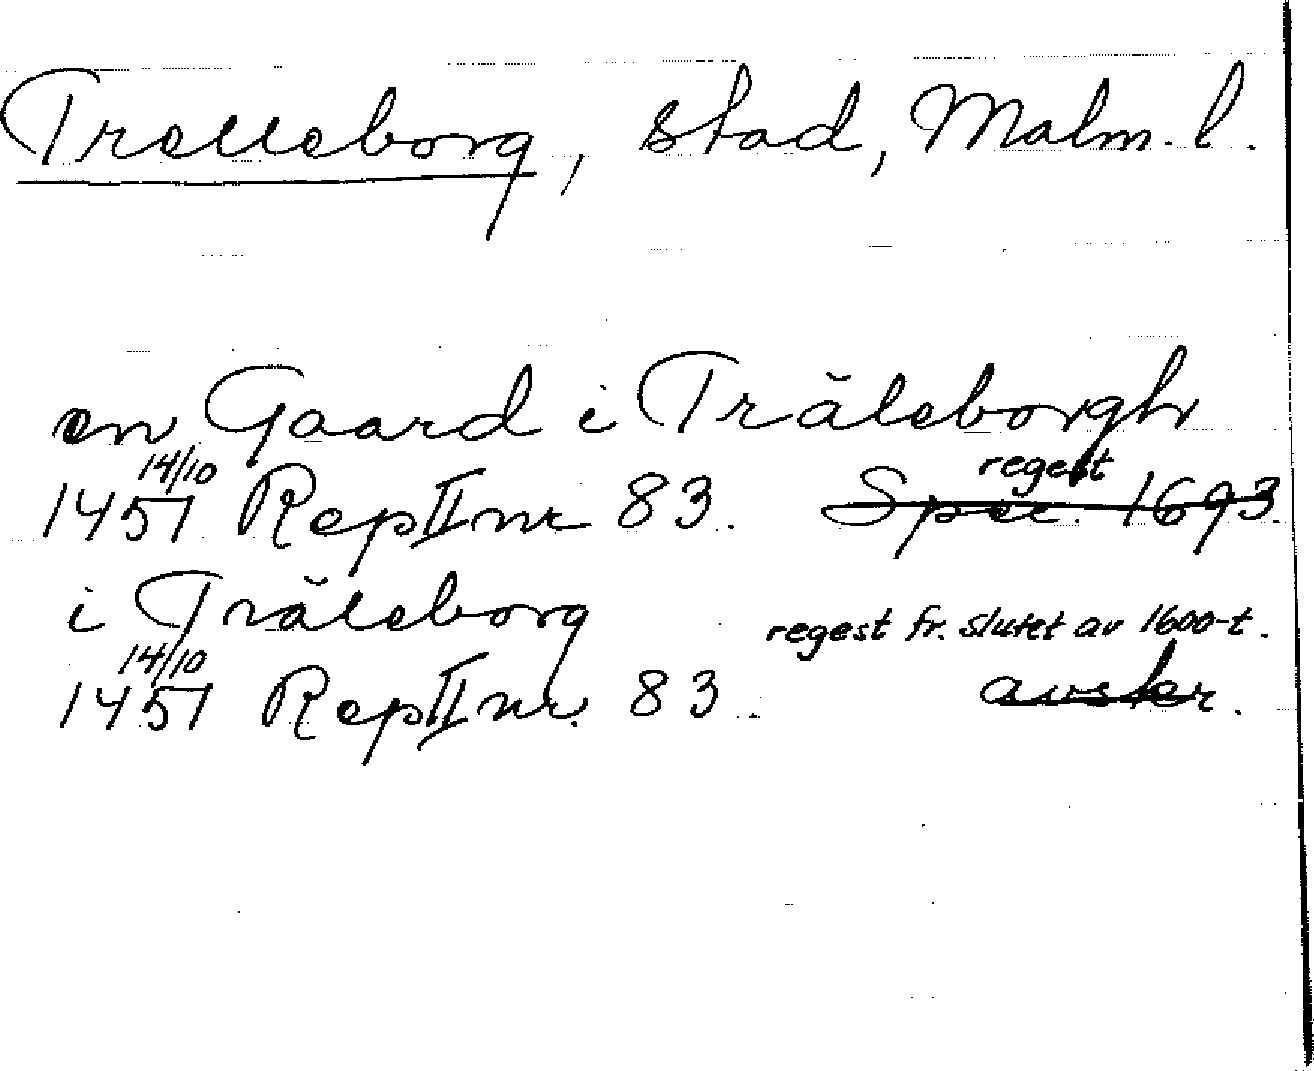 Trelleborg, stad, Malm. l.
en Gaard i Träleborgh
14/10 regest
1457 Rep II nr 83. Spec. 1693.
i Träleborg
regest fr. slutet av 1600-t.
14/10
1457 Rep II nr. 83. avskr.